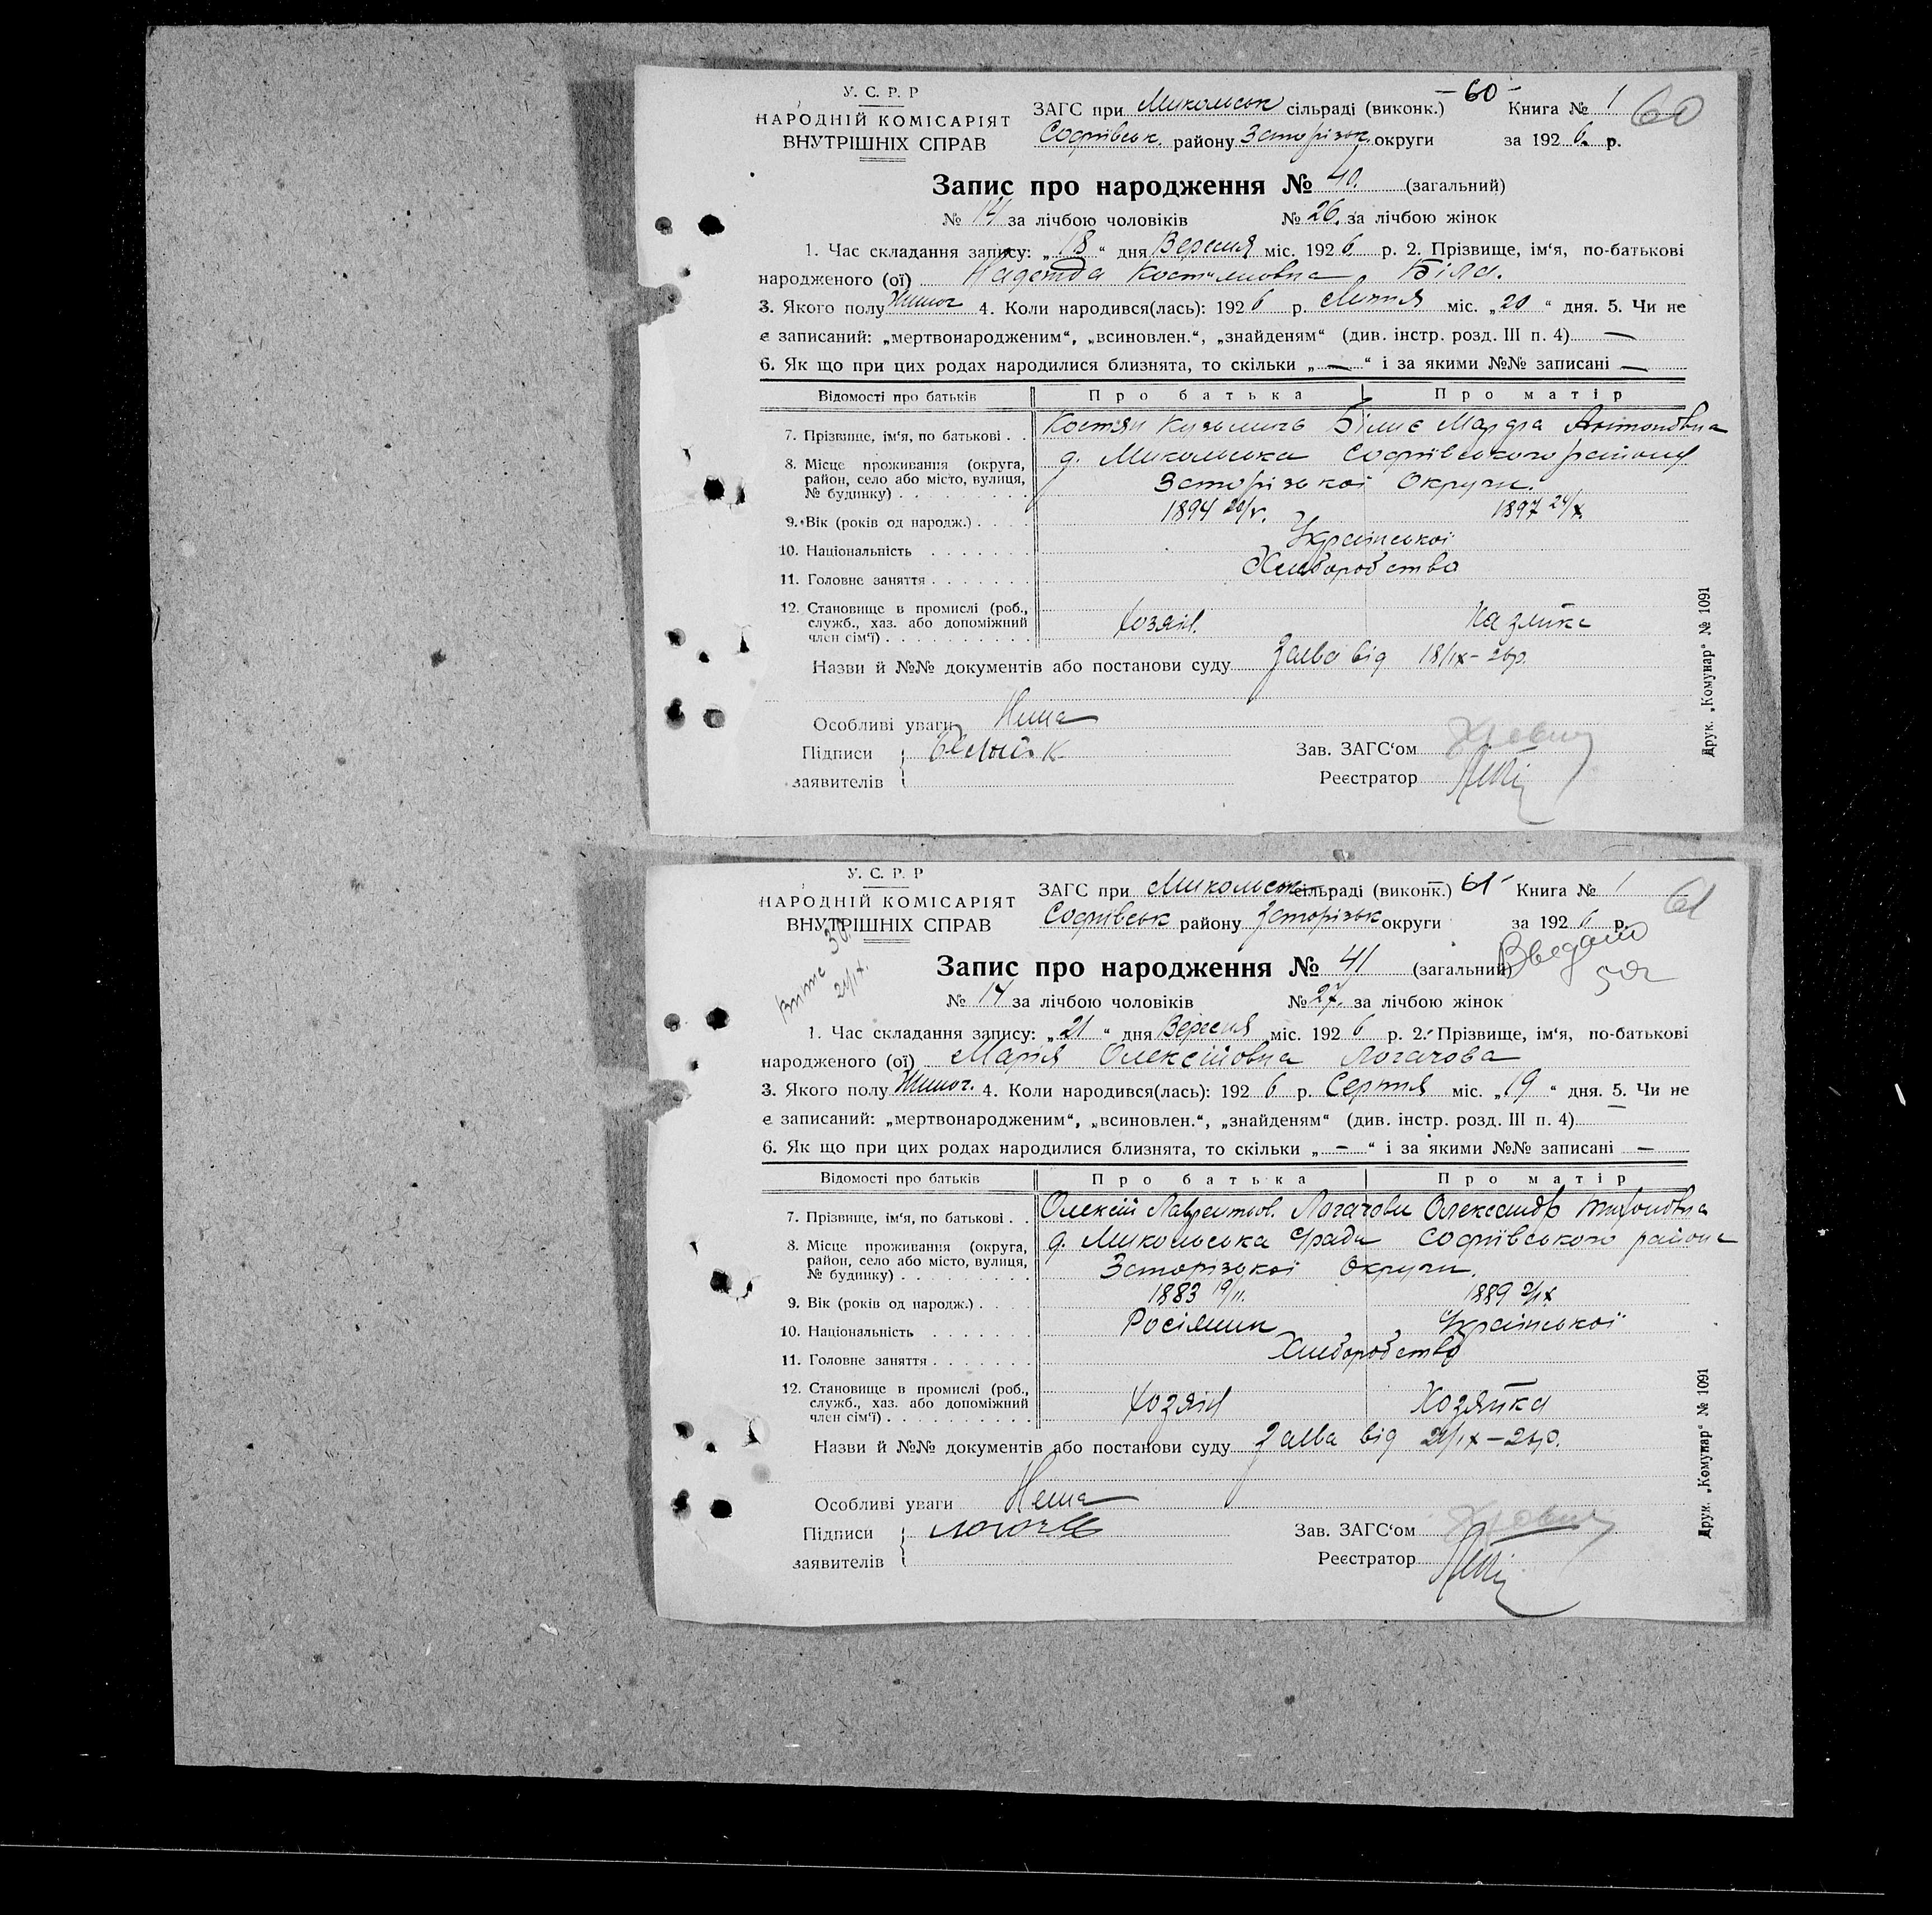 У. С. Р. Р
НАРОДНІЙ КОМІСАРІЯТ
ВНУТРІШНІХ СПРАВ
ЗАГС при Микольськ сільраді (виконк.) – 60 – Книга № 1 60
Софіївськ. району Запорізьк. округи за 1926. р.
Запис про народження № 40. (загальний)
№ 14 за лічбою чоловіків № 26. за лічбою жінок
1. Час складання запису: „18“ дня Вересня міс. 1926 р. 2. Прізвище, ім‘я, по-батькові
народженого (ої) Надежда Костяновна Біла.
3. Якого полу Жиноч 4. Коли народився(лась): 1926 р. Липня міс. „20“ дня. 5. Чи не
є записаний: „мертвонародженим“, „всиновлен.“, „знайденям“ (див. інстр. розд. III п. 4) —
6. Як що при цих родах народилися близнята, то скільки „—“ і за якими №№ записані —
Відомості про батьків Про батька Про матір
7. Прізвище, ім‘я, по батькові . . Костян Кузьмичь Білиє Марфа Антоновна
8. Місце проживання (округа, район, село або місто, вулиця, № будинку) . . . д. Микольська Софіївського району
Запорізької Округи.
9. Вік (років од народж.) . . . . 1894 20/V. 1897 24/X.
10. Національність . . . . . . . Української
11. Головне заняття . . . . . . . Хлиборобство
12. Становище в промислі (роб., служб., хаз. або допоміжний член сім‘ї) . . . хозяін.
Назви й №№ документів або постанови суду Заява від 18/IX – 26р.
Особливі уваги Нема
Підписи заявителів
Зав. ЗАГС‘ом
Реєстратор
Друк. „Комунар“ № 1091
У. С. Р. Р
НАРОДНІЙ КОМІСАРІЯТ
ВНУТРІШНІХ СПРАВ
ЗАГС при Микольськ сільраді (виконк.) 61 – Книга № 1 61
Софіївськ району Запорізьк округи за 1926 р.
Запис про народження № 41 (загальний)
№ 14 за лічбою чоловіків № 27. за лічбою жінок
1. Час складання запису: „21“ дня Вересня міс. 1926 р. 2. Прізвище, ім‘я, по-батькові
народженого (ої) Марія Олексійовна Логачова
3. Якого полу Жиноч. 4. Коли народився(лась): 1926 р. Серпня міс. „19“ дня. 5. Чи не
є записаний: „мертвонародженим“, „всиновлен.“, „знайденям“ (див. інстр. розд. III п. 4) —
6. Як що при цих родах народилися близнята, то скільки „—“ і за якими №№ записані —
Відомості про батьків Про батька Про матір
7. Прізвище, ім‘я, по батькові . . Олексій Лаврентьов. Логачови
8. Місце проживання (округа, район, село або місто, вулиця, № будинку) . . . д. Микольська Софіївського района
Запорізької Округи.
9. Вік (років од народж.) . . . . 1883 1889
10. Національність . . . . . . . Росіянин Української
11. Головне заняття . . . . . . . Хлиборобство
12. Становище в промислі (роб., служб., хаз. або допоміжний член сім‘ї) . . . хозяін Хозяйка
Назви й №№ документів або постанови суду Заява від 21/IX – 26р.
Особливі уваги Нема
Підписи заявителів
Зав. ЗАГС‘ом
Реєстратор
Друк. „Комунар“ № 1091